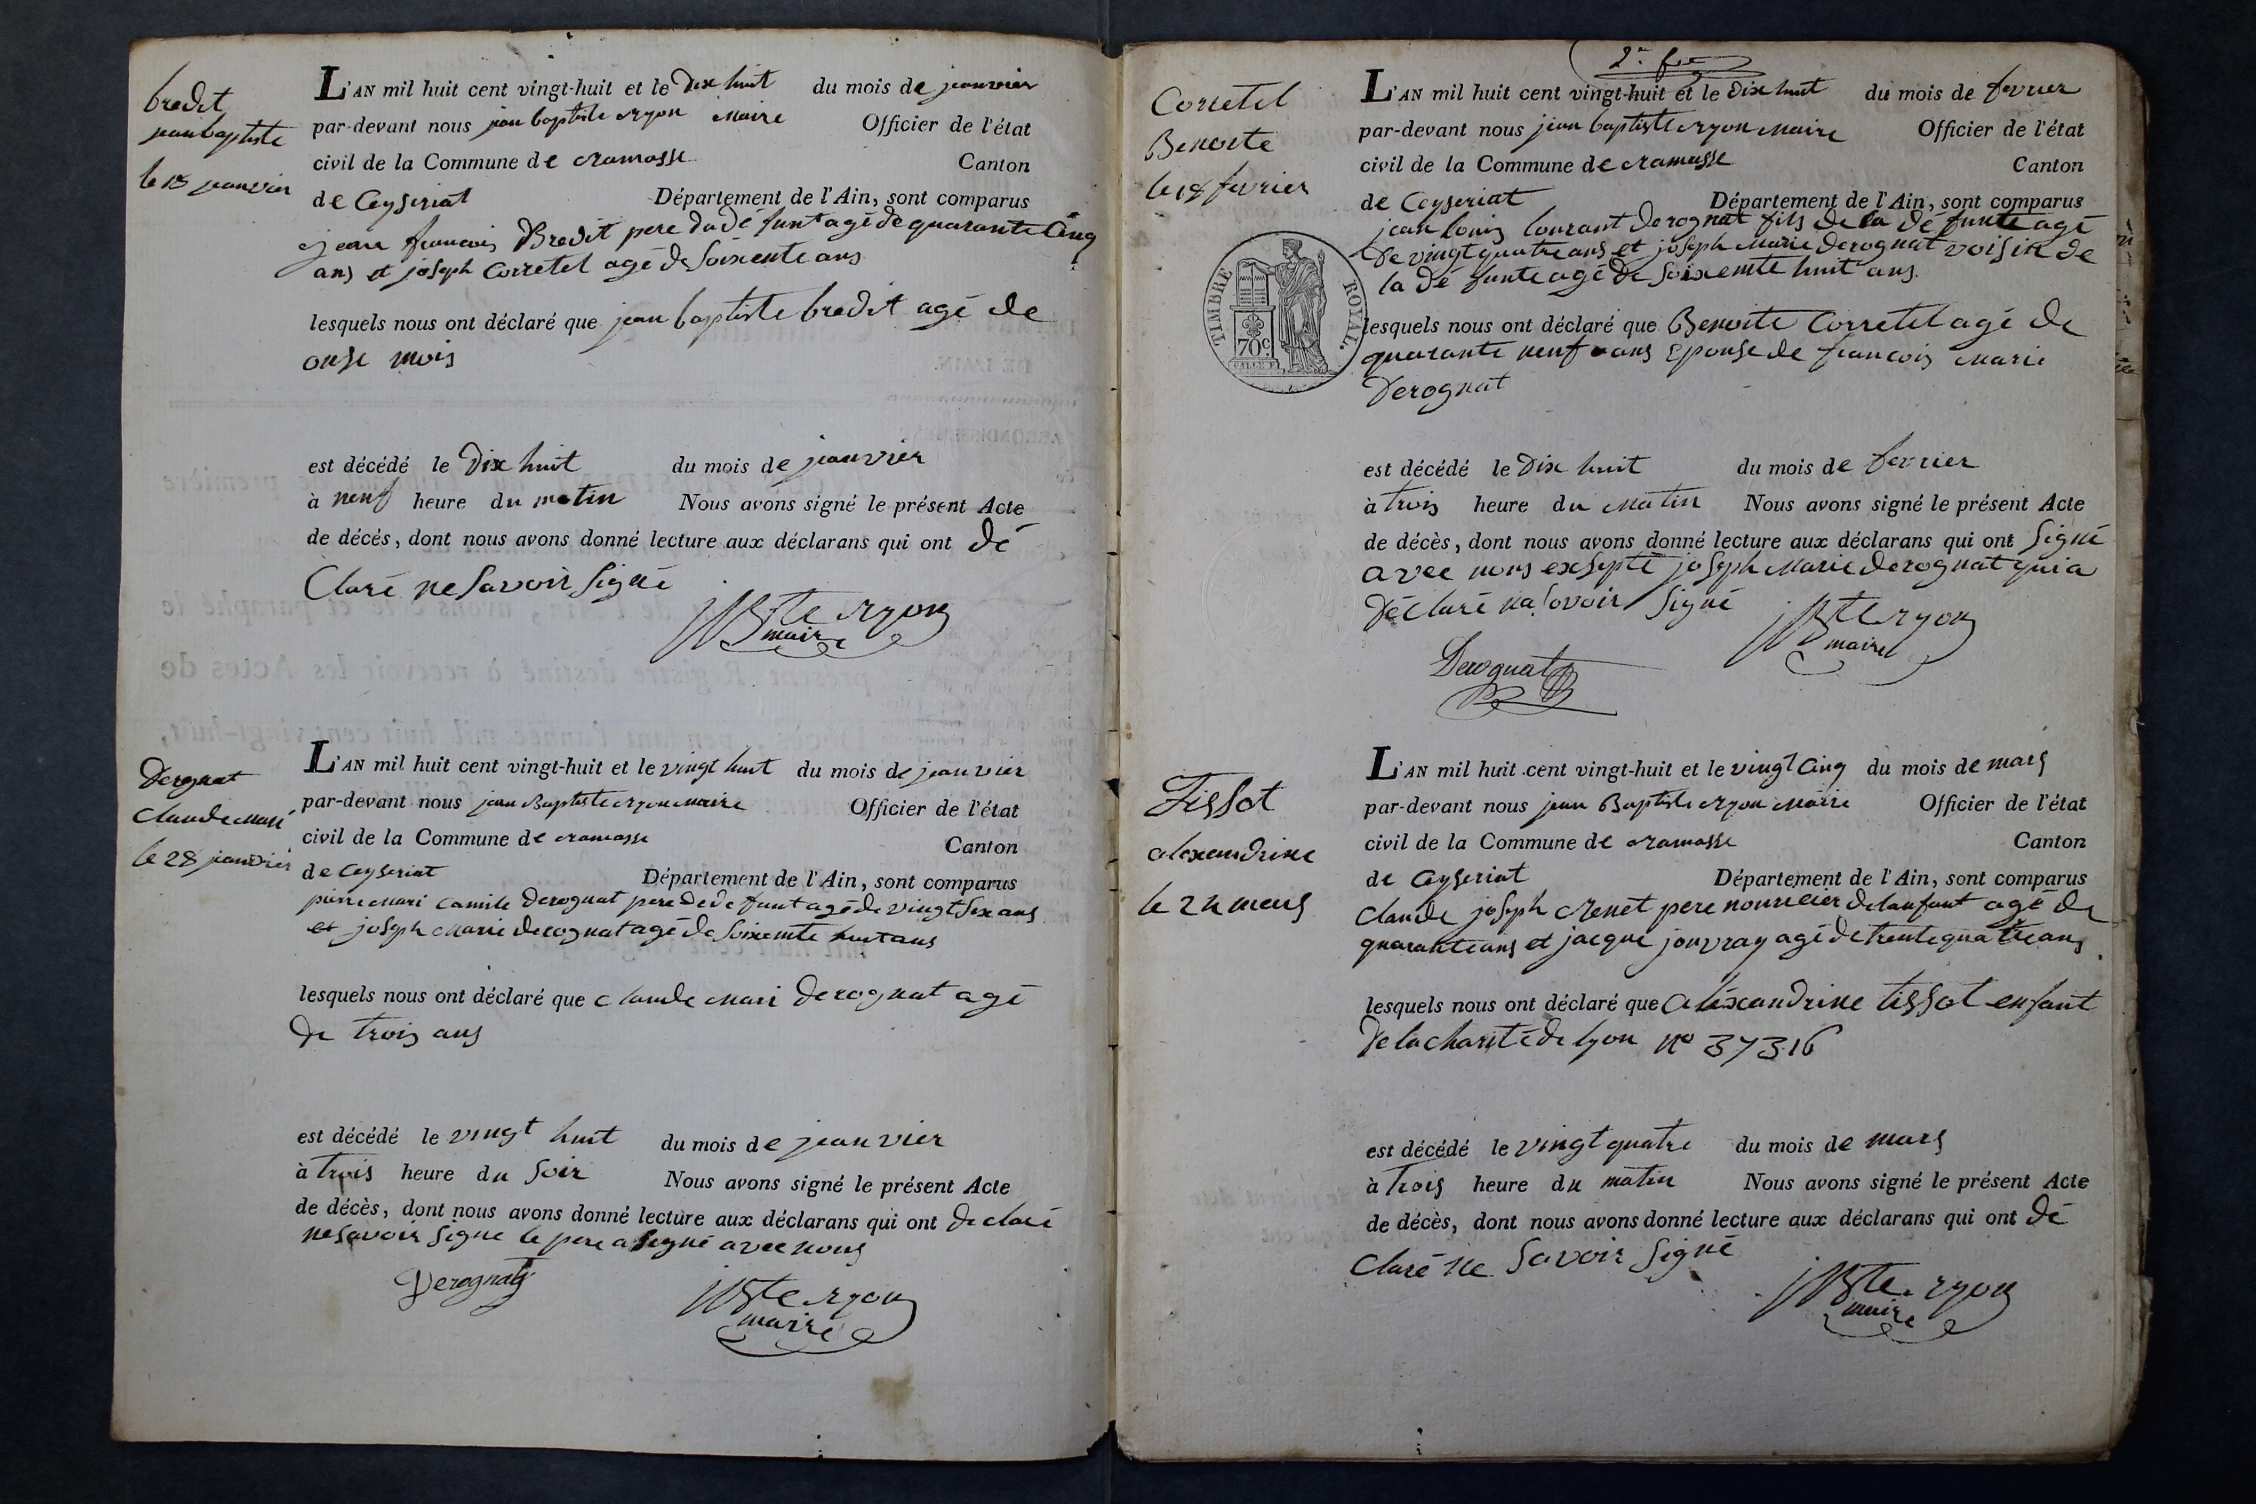 bredit
jean baptiste
le 18 janvier
L'AN mil huit cent vingt-huit et le Dix huit du mois de jeanvier
par-devant nous jean baptiste ryon maire Officier de l'état
civil de la Commune de cramasse Canton
de Ceyseriat Département de l'Ain, sont comparus
jean francois Bredit pere du dé funt agé de quarante Cinq
ans et joseph Corretel agé de Soixente ans
lesquels nous ont déclaré que jean baptiste bredit agé de
onse mois
est décédé le Dix huit du mois de jeanvier
à neuf heure du matin Nous avons signé le présent Acte
de décés, dont nous avons donné lecture aux déclarans qui ont dé
Claré ne Savoir Signé
JBte ryon
maire
Derognat
Claude Mari
le 28 jeanvier
L'AN mil huit cent vingt-huit et le vingt huit du mois de jeanvier
par-devant nous jean Baptiste ryon maire Officier de l'état
civil de la Commune de cramasse Canton
de Ceyseriat Département de l'Ain, sont comparus
pierre mari camile Derognat pere de de funt agé de vingt Six ans
et joseph Marie derognat agé de Soixente huit ans
lesquels nous ont déclaré que claude mari Derognat agé
de trois ans
est décédé le vingt huit du mois de jeanvier
à trois heure du Soir Nous avons signé le présent Acte
de décès, dont nous avons donné lecture aux déclarans qui ont declaré
ne Savoir Signe le pere a Signé avec nous
Derognat
JBte ryon
maire
2e fe
Corretel
Benoite
le 18 fevrier
L'AN mil huit cent vingt-huit et le Dix huit du mois de fevrier
par-devant nous jean baptiste ryon maire Officier de l'état
civil de la Commune de cramasse Canton
de Ceyseriat Département de l'Ain, sont comparus
jean louis lourant derognat fils de la dé funte agé
De vingt quatre ans et joseph Marie derognat voisin de
la dé funte agé de Soixemte huit ans
TIMBRE ROYAL.
70c
lesquels nous ont déclaré que Benoite Corretel agé de
quarante neuf ans Epouse de francois Marie
Derognat
est décédé le Dix huit du mois de fevrier
à trois heure du Matin Nous avons signé le présent Acte
de décès, dont nous avons donné lecture aux déclarans qui ont Signé
avec nous exsepté joseph Marie derognat qui a
Déclaré na Savoir Signé
JBte ryon
maire
Derognat
Tissot
alexandrine
le 24 mars
L'AN mil huit cent vingt-huit et le vingt Cinq du mois de mars
par-devant nous jean Baptiste ryon Maire Officier de l'état
civil de la Commune de cramasse Canton
de Ceyseriat Département de l'Ain, sont comparus
Claude joseph crenet pere nouricier de lanfant agé de
quarante ans et jacque jouvray agé de trente quatre ans
lesquels nous ont déclaré que Aléxandrine tissot enfant
De la charité de lyon no 37316
est décédé le vingt quatre du mois de mars
à trois heure du matin Nous avons signé le présent Acte
de décès, dont nous avons donné lecture aux déclarans qui ont dé
Claré ne Savoir Signé
JBte ryon
maire